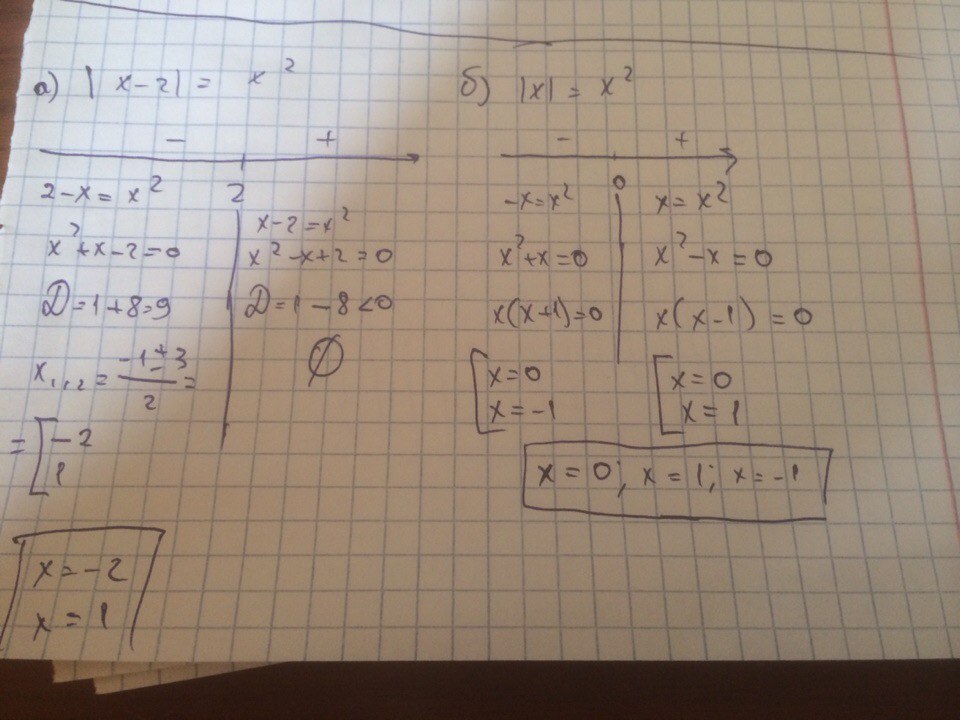 а) |x-2| = x²
- +
2
2-x = x²
x²+x-2=0
D=1+8=9
x₁,₂ = (-1±3)/2 =
= [-2
1
x-2=x²
x²-x+2=0
D=1-8<0
∅
x=-2
x=1
б) |x| = x²
- +
0
-x=x²
x²+x=0
x(x+1)=0
[x=0
x=-1
x=x²
x²-x=0
x(x-1)=0
[x=0
x=1
x=0; x=1; x=-1